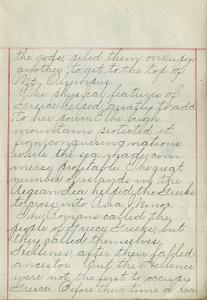 the gods, piled them one upon
another to get to the top of
Mt. Olympus.
The physical features of
Greece helped greatly to add
to her power. The high
mountains protected it
from conquering nations
while the sea made com-
merce profitable. The great
number of islands in the
Aegean Sea helped the Greeks
to cross into Asia Minor.
The Romans called the
people of Greece Greeks, but
they called themselves
Hellenes after their fabled
ancestor. But the Hellenes
were not the first to occupy
Greece. Before their time a race